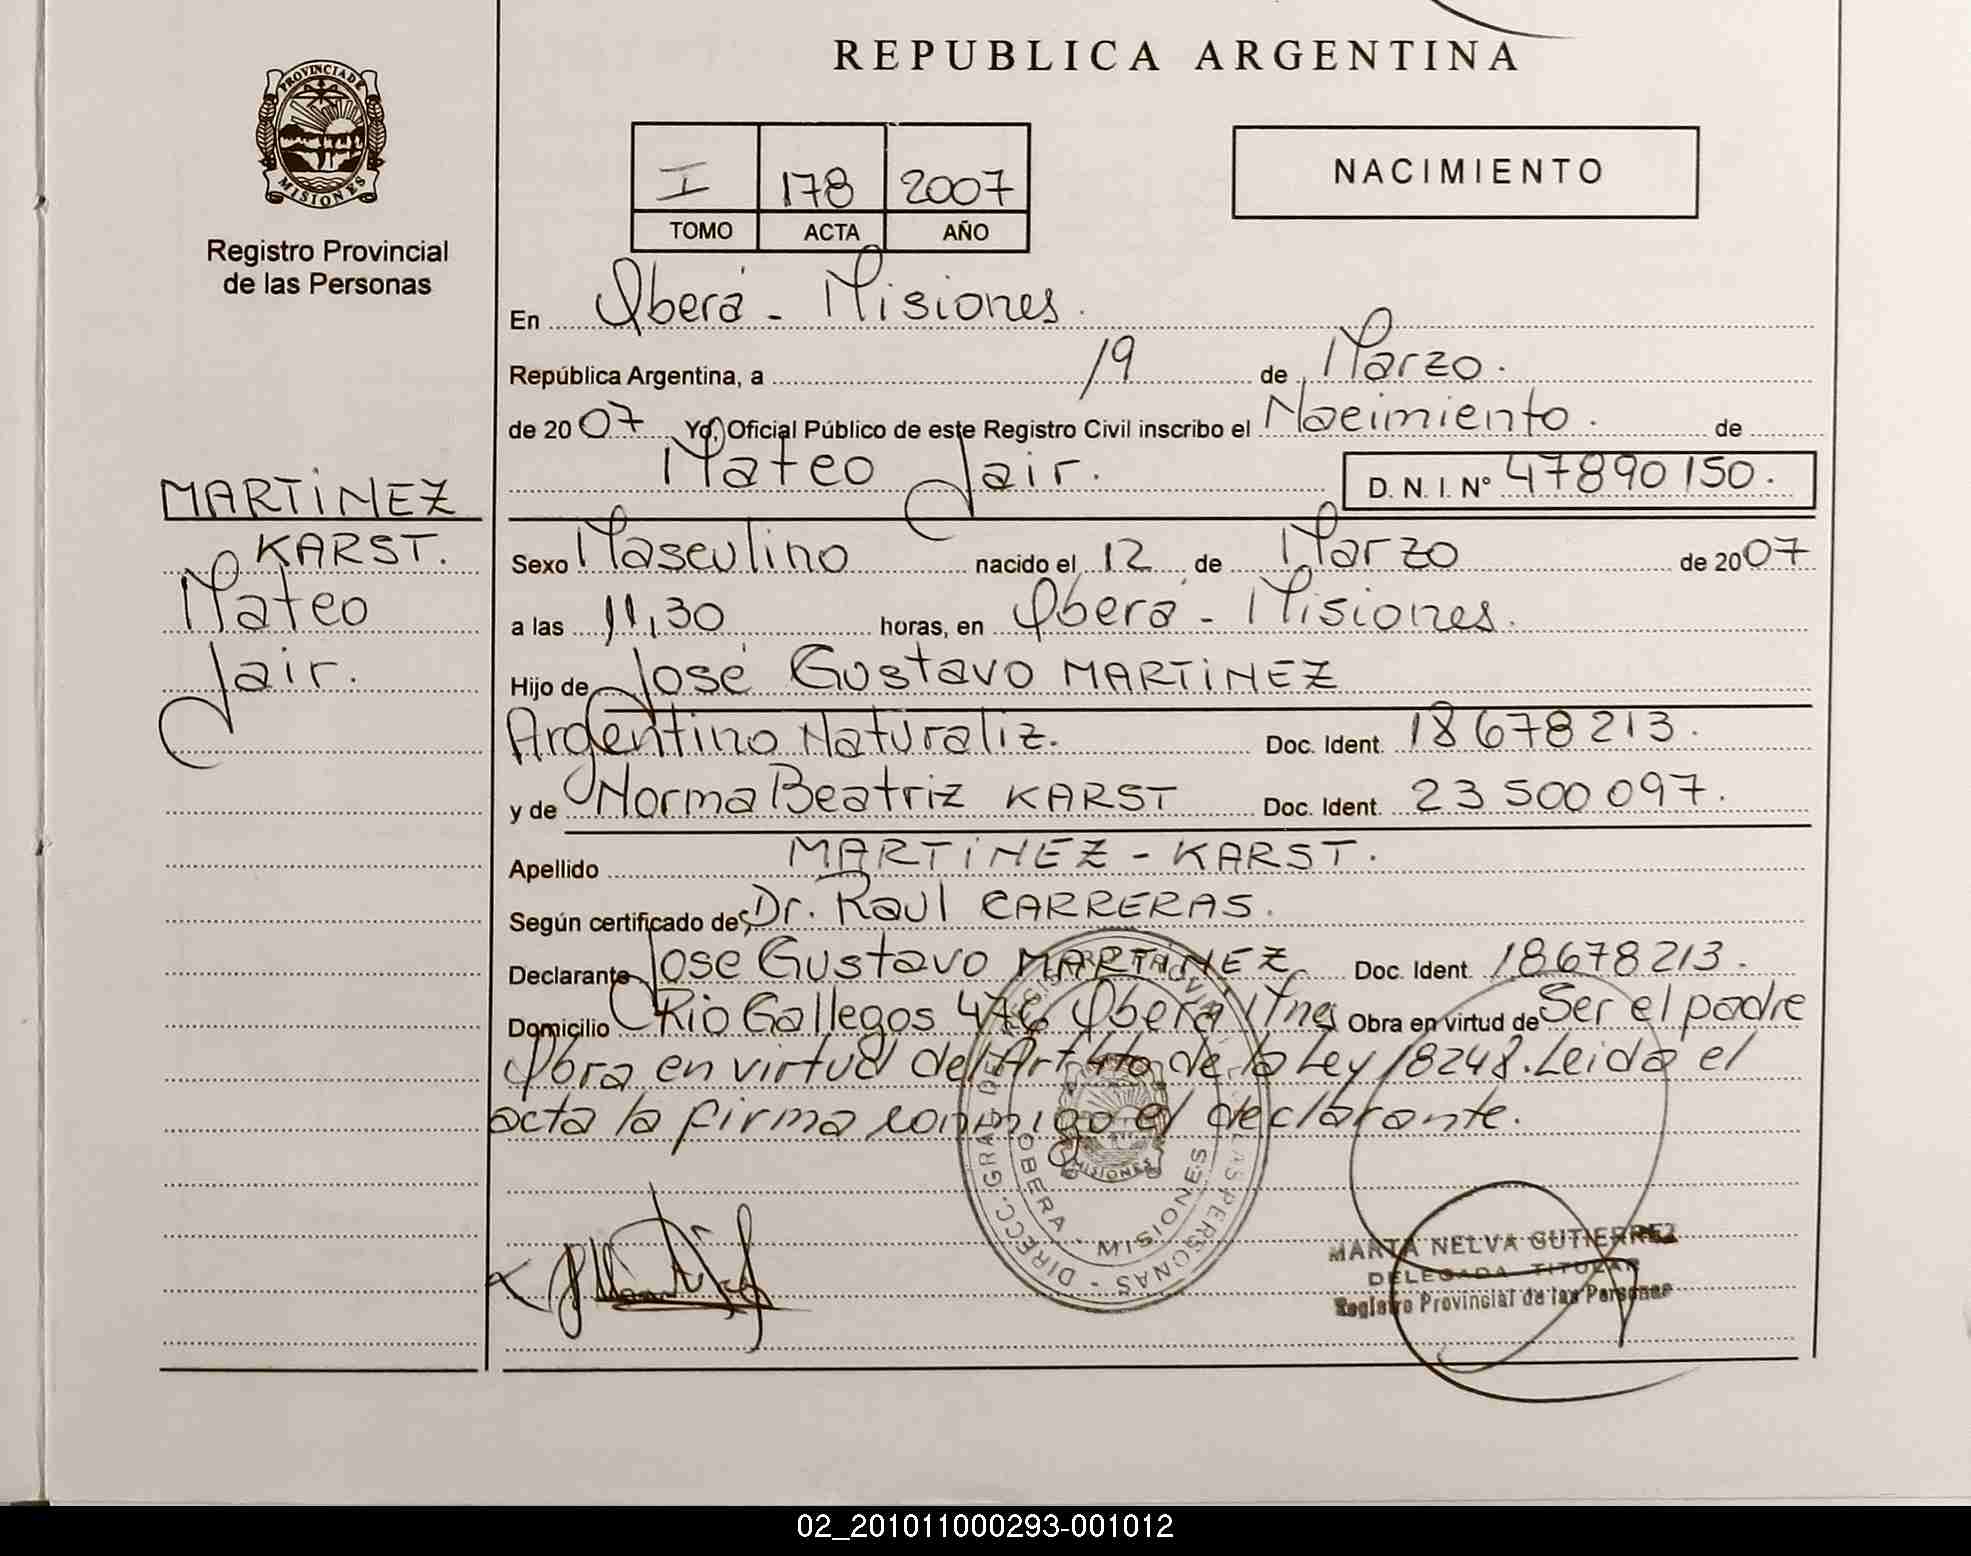 REPUBLICA ARGENTINA
PROVINCIA DE
MISIONES
Registro Provincial
de las Personas
I 178 2007
TOMO ACTA AÑO
NACIMIENTO
En Oberá - Misiones.
República Argentina, a 19 de Marzo.
de 2007 Yo, Oficial Público de este Registro Civil inscribo el Nacimiento. de
Mateo Jair. D. N. I. Nº 47890150.
MARTiNEZ
KARST.
Mateo
Jair.
Sexo Masculino nacido el 12 de Marzo de 2007
a las 11,30 horas, en Oberá - Misiones.
Hijo de José Gustavo MARTiNEZ
Argentino Naturaliz. Doc. Ident. 18678213.
y de Norma Beatriz KARST Doc. Ident. 23500097.
Apellido MARTiNEZ - KARST.
Según certificado de Dr. Raul CARRERAS.
Declarante José Gustavo MARTiNEZ Doc. Ident. 18678213.
Domicilio Rio Gallegos 476 Oberá Mnes Obra en virtud de Ser el padre
Obra en virtud del Art 4to de la Ley 18248. Leida el
acta la firma conmigo el declarante.
DIRECC. GRAL. DEL REGISTRO PROVINCIAL DE LAS PERSONAS
OBERA - MISIONES
MISIONES
MARTA NELVA GUTIERREZ
DELEGADA TITULAR
Registro Provincial de las Personas
02_201011000293-001012